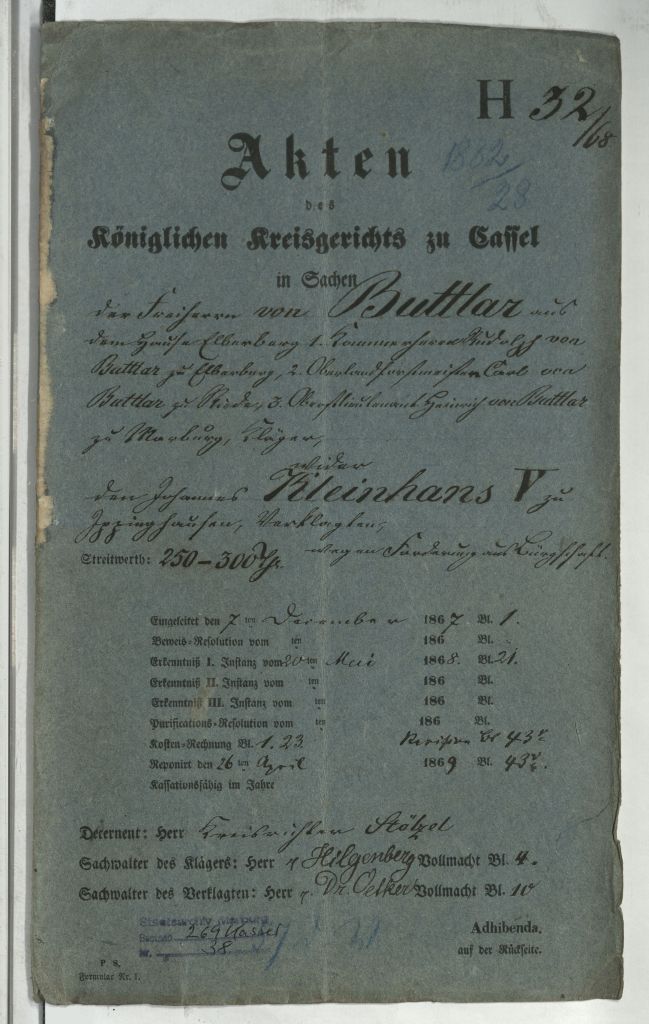 H 32/68
Akten
1882/28
des
Königlichen Kreisgerichts zu Cassel
in Sachen
der Freiherrn von Buttlar aus
dem Hause Elberberg 1. Kammerherrn Rudolph von
Buttlar zu Elberberg, 2. Oberlandforstmeister Carl von
Buttlar zu Riede, 3. Oberstlieutenant Heinrich von Buttlar
zu Marburg, Kläger,
wider
den Johannes Kleinhans V zu
Ippinghausen, Verklagten,
wegen Forderung aus Bürgschaft.
Streitwerth: 250–300
Eingeleitet den 7 ten December 1867 Bl. 1.
Beweis-Resolution vom ten 186 Bl.
Erkenntniß I. Instanz vom 20 ten Mai 1868. Bl. 21.
Erkenntniß II. Instanz vom ten 186 Bl.
Erkenntniß III. Instanz vom ten 186 Bl.
Purifications-Resolution vom ten 186 Bl.
Kosten-Rechnung Bl. 1. 23. Revision Bl 43
Reponirt den 26 ten April 1869 Bl. 43
Kassationsfähig im Jahre
Decernent: Herr Kreisrichter Stölzel
Sachwalter des Klägers: Herr Hilgenberg Vollmacht Bl. 4.
Sachwalter des Verklagten: Herr Dr. Oetker Vollmacht Bl. 10
Staatsarchiv Marburg
Bestand 269 Kassel
Nr. 38
Adhibenda.
auf der Rückseite.
P. S.
Formular Nr. 1.